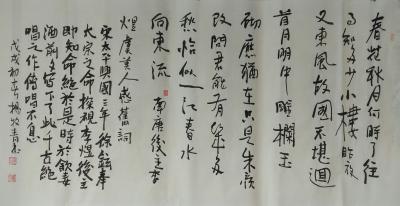 春花秋月何時了往
事知多少小樓昨夜
又東風故國不堪迴
首月明中雕欄玉
砌應猶在只是朱顏
改問君能有幾多
愁恰似一江春水
向東流 南唐後主李
煜虞美人感舊詞
宋太平興國三年徐鉉奉
太宗之命探視李煜後主
即知命絕於是時於飲毒
酒前夕寫下了此千古絕
唱之作傳唱不息
戊戌初冬楊牧青書